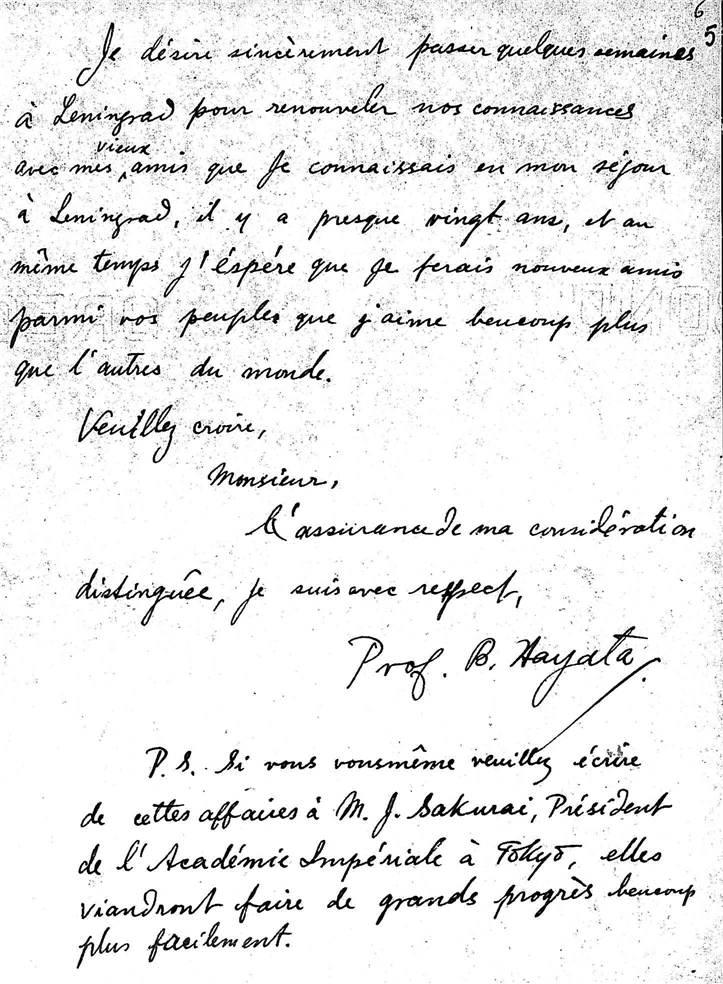 6
5
Je désire sincèrement passer quelques semaines
à Leningrad pour renouveler nos connaissances
vieux
avec mes amis que je connaissais en mon séjour
à Leningrad, il y a presque vingt ans, et au
même temps j'éspére que je ferais nouveux amis
parmi vos peuples que j'aime beaucoup plus
que l'autres du monde.
Veuillez croire,
Monsieur,
l'assurance de ma considération
distinguée, je suis avec respect,
Prof. B. Hayata.
P.S. Si vous vousmême veuillez écrire
de cettes affaires à M. J. Sakurai, Président
de l'Académie Impériale à Tōkyō, elles
viandront faire de grands progrès beaucoup
plus facilement.